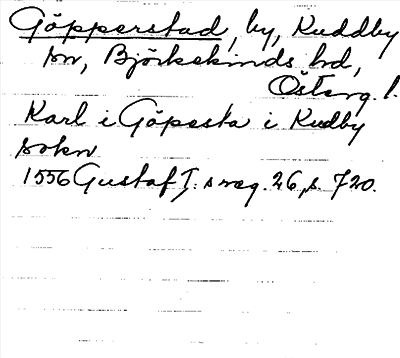 Göpperstad, by, Kuddby
sn, Björkekinds hd,
Österg. l.
Karl i Göpesta i Kudby
sokn
1556 Gustaf I:s reg. 26, s. 720.